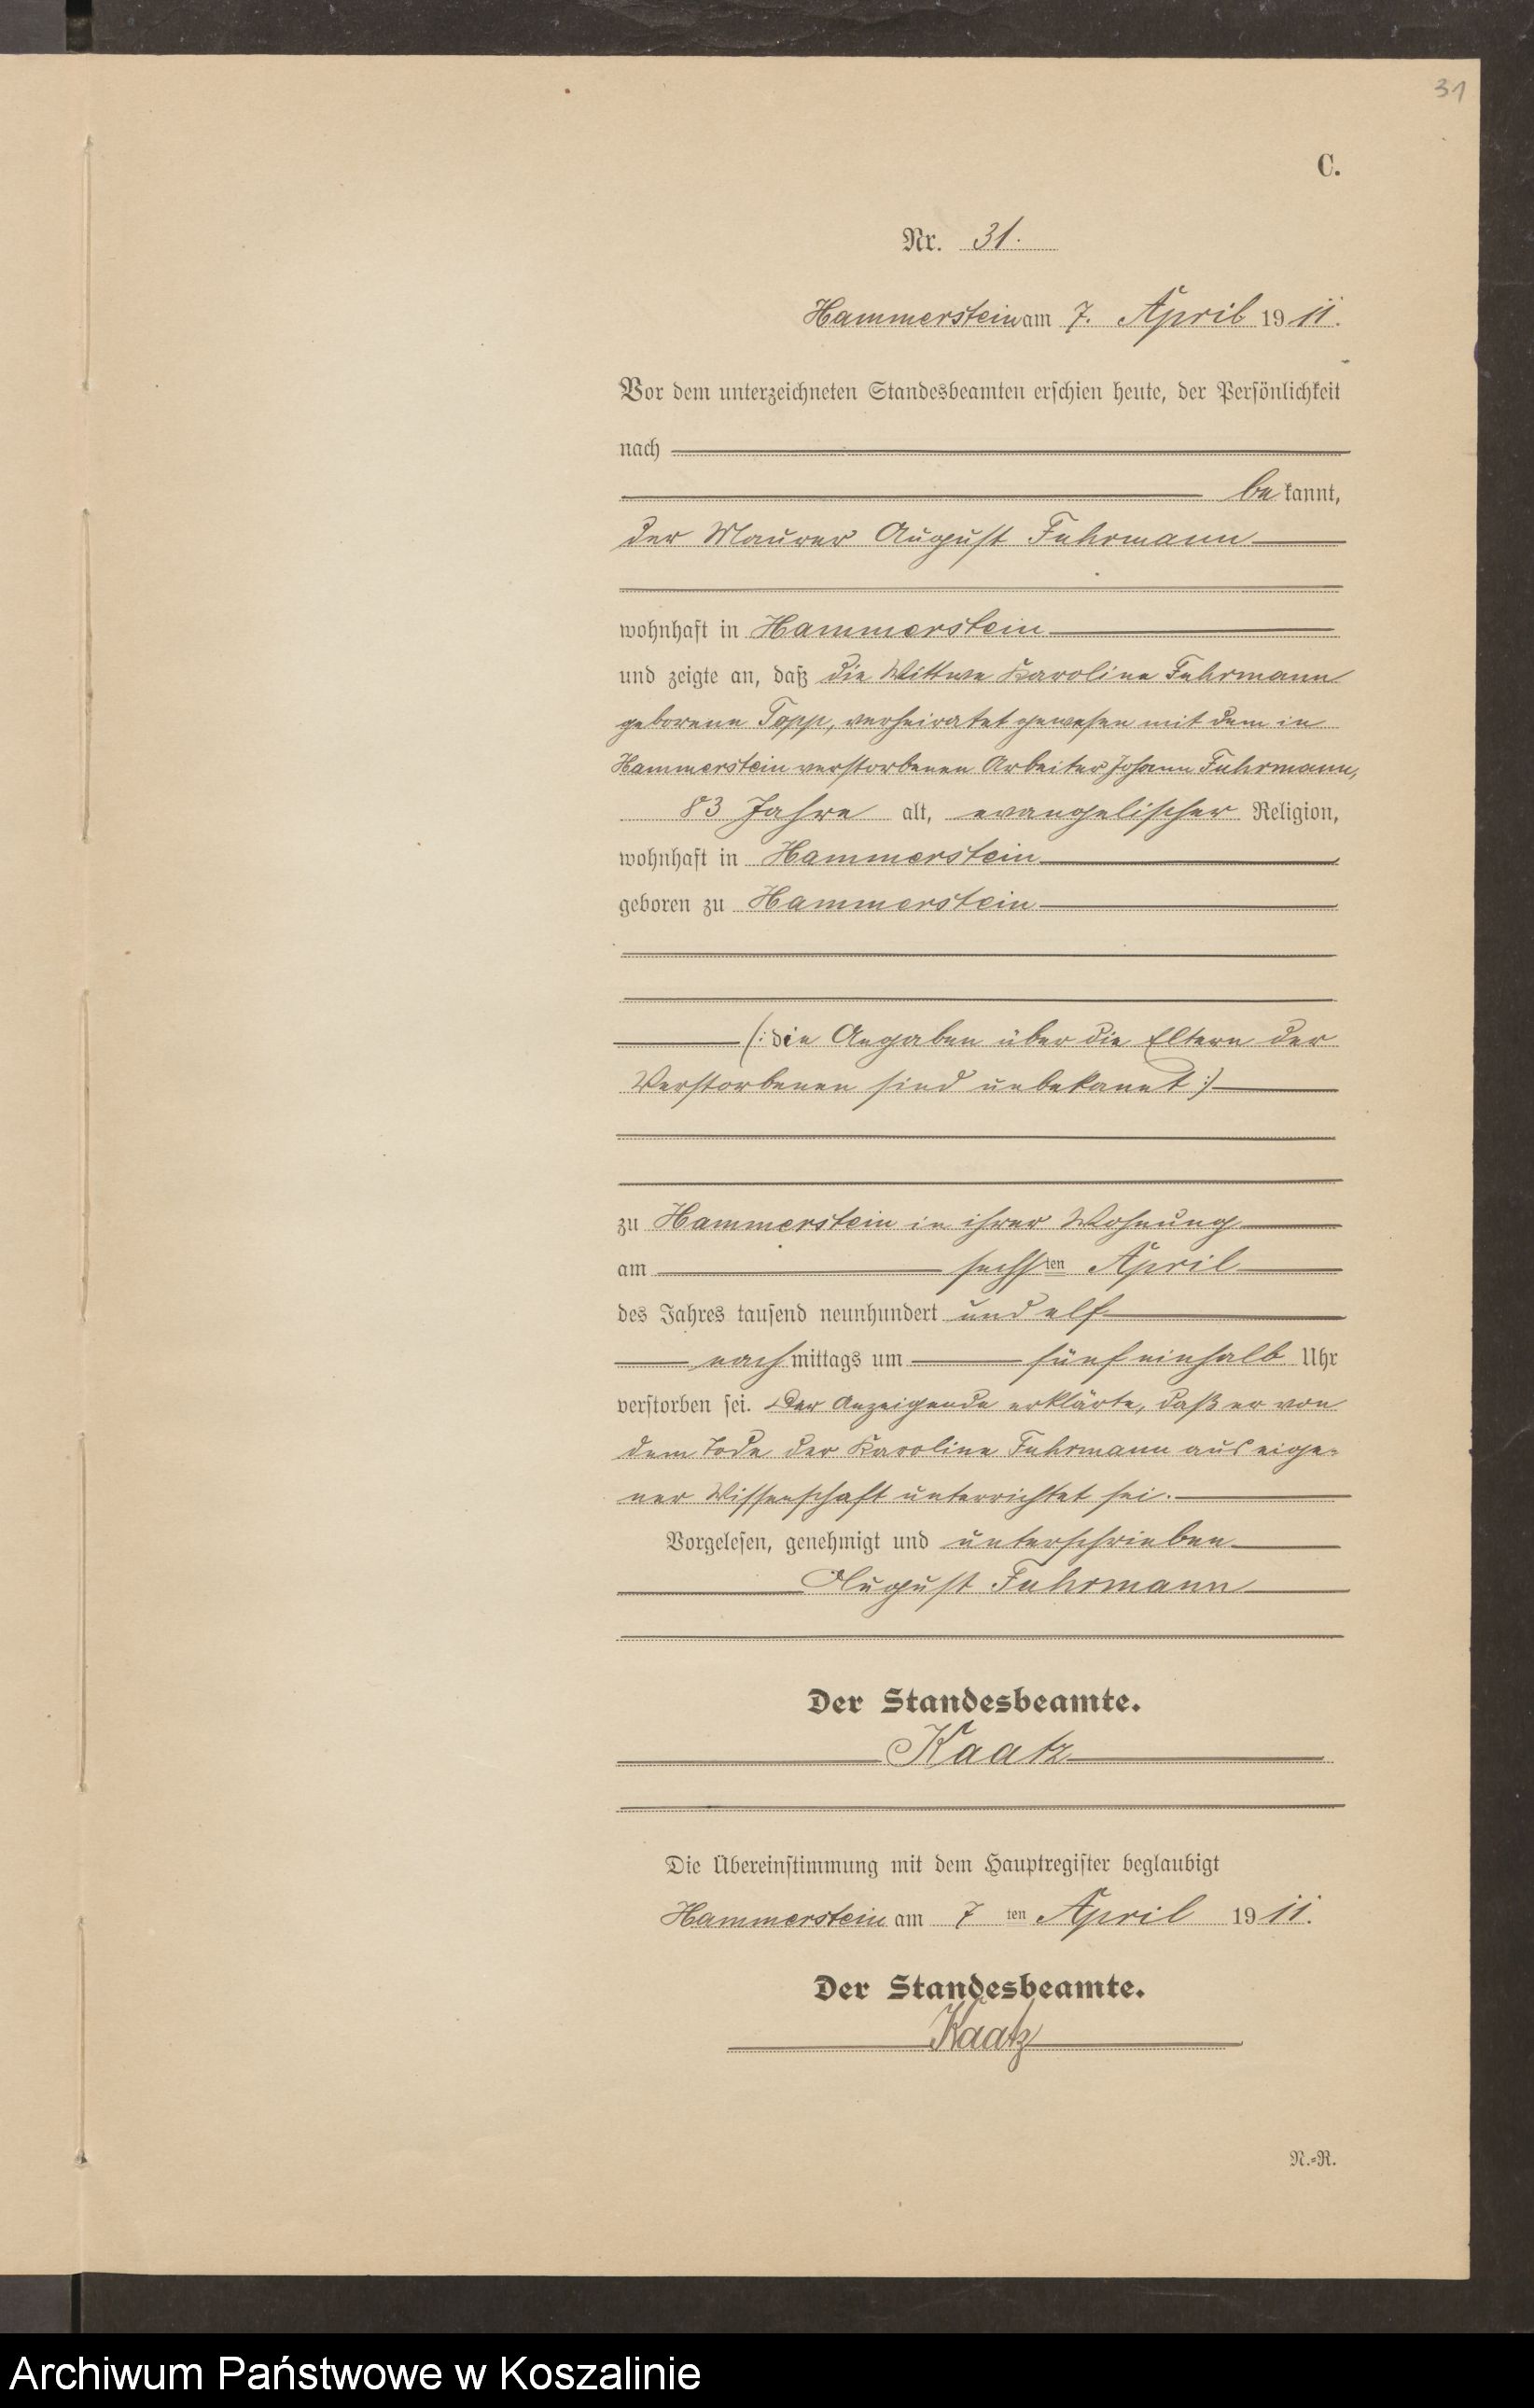 31
C.
Nr. 31.
Hammerstein am 7. April 1911.
Vor dem unterzeichneten Standesbeamten erschien heute, der Persönlichkeit
nach
bekannt,
der Maurer August Fuhrmann
wohnhaft in Hammerstein
und zeigte an, daß die Wittwe Karoline Fuhrmann
geborene Topp, verheiratet gewesen mit dem in
Hammerstein verstorbenen Arbeiter Johann Fuhrmann,
83 Jahre alt, evangelischer Religion,
wohnhaft in Hammerstein
geboren zu Hammerstein
(: die Angaben über die Eltern der
Verstorbenen sind unbekannt :)
zu Hammerstein in ihrer Wohnung
am sechsten April
des Jahres tausend neunhundert und elf
nachmittags um fünf einhalb Uhr
verstorben sei. Der Anzeigende erklärte, daß er von
dem Tode der Karoline Fuhrmann aus eige-
ner Wissenschaft unterrichtet sei.
Vorgelesen, genehmigt und unterschrieben
August Fuhrmann
Der Standesbeamte.
Kaatz
Die Übereinstimmung mit dem Hauptregister beglaubigt
Hammerstein am 7ten April 1911.
Der Standesbeamte.
Kaatz
N.=R.
Archiwum Państwowe w Koszalinie